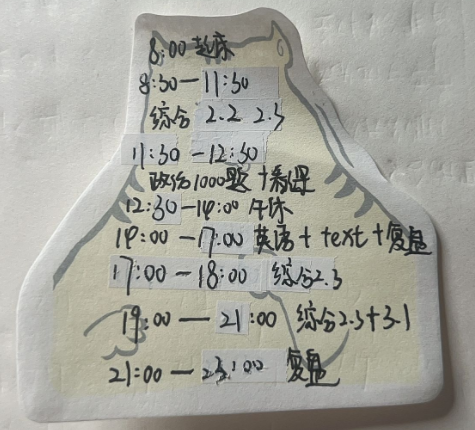 8:00 起床
8:30—11:30
综合 2.2 2.3
11:30 —12:30
政治1000题 +
12:30 —14:00 午休
14:00 —17:00 英语 + text + 复盘
17:00 —18:00 综合2.3
19:00 — 21:00 综合2.3+3.1
21:00 — 23:00 复盘